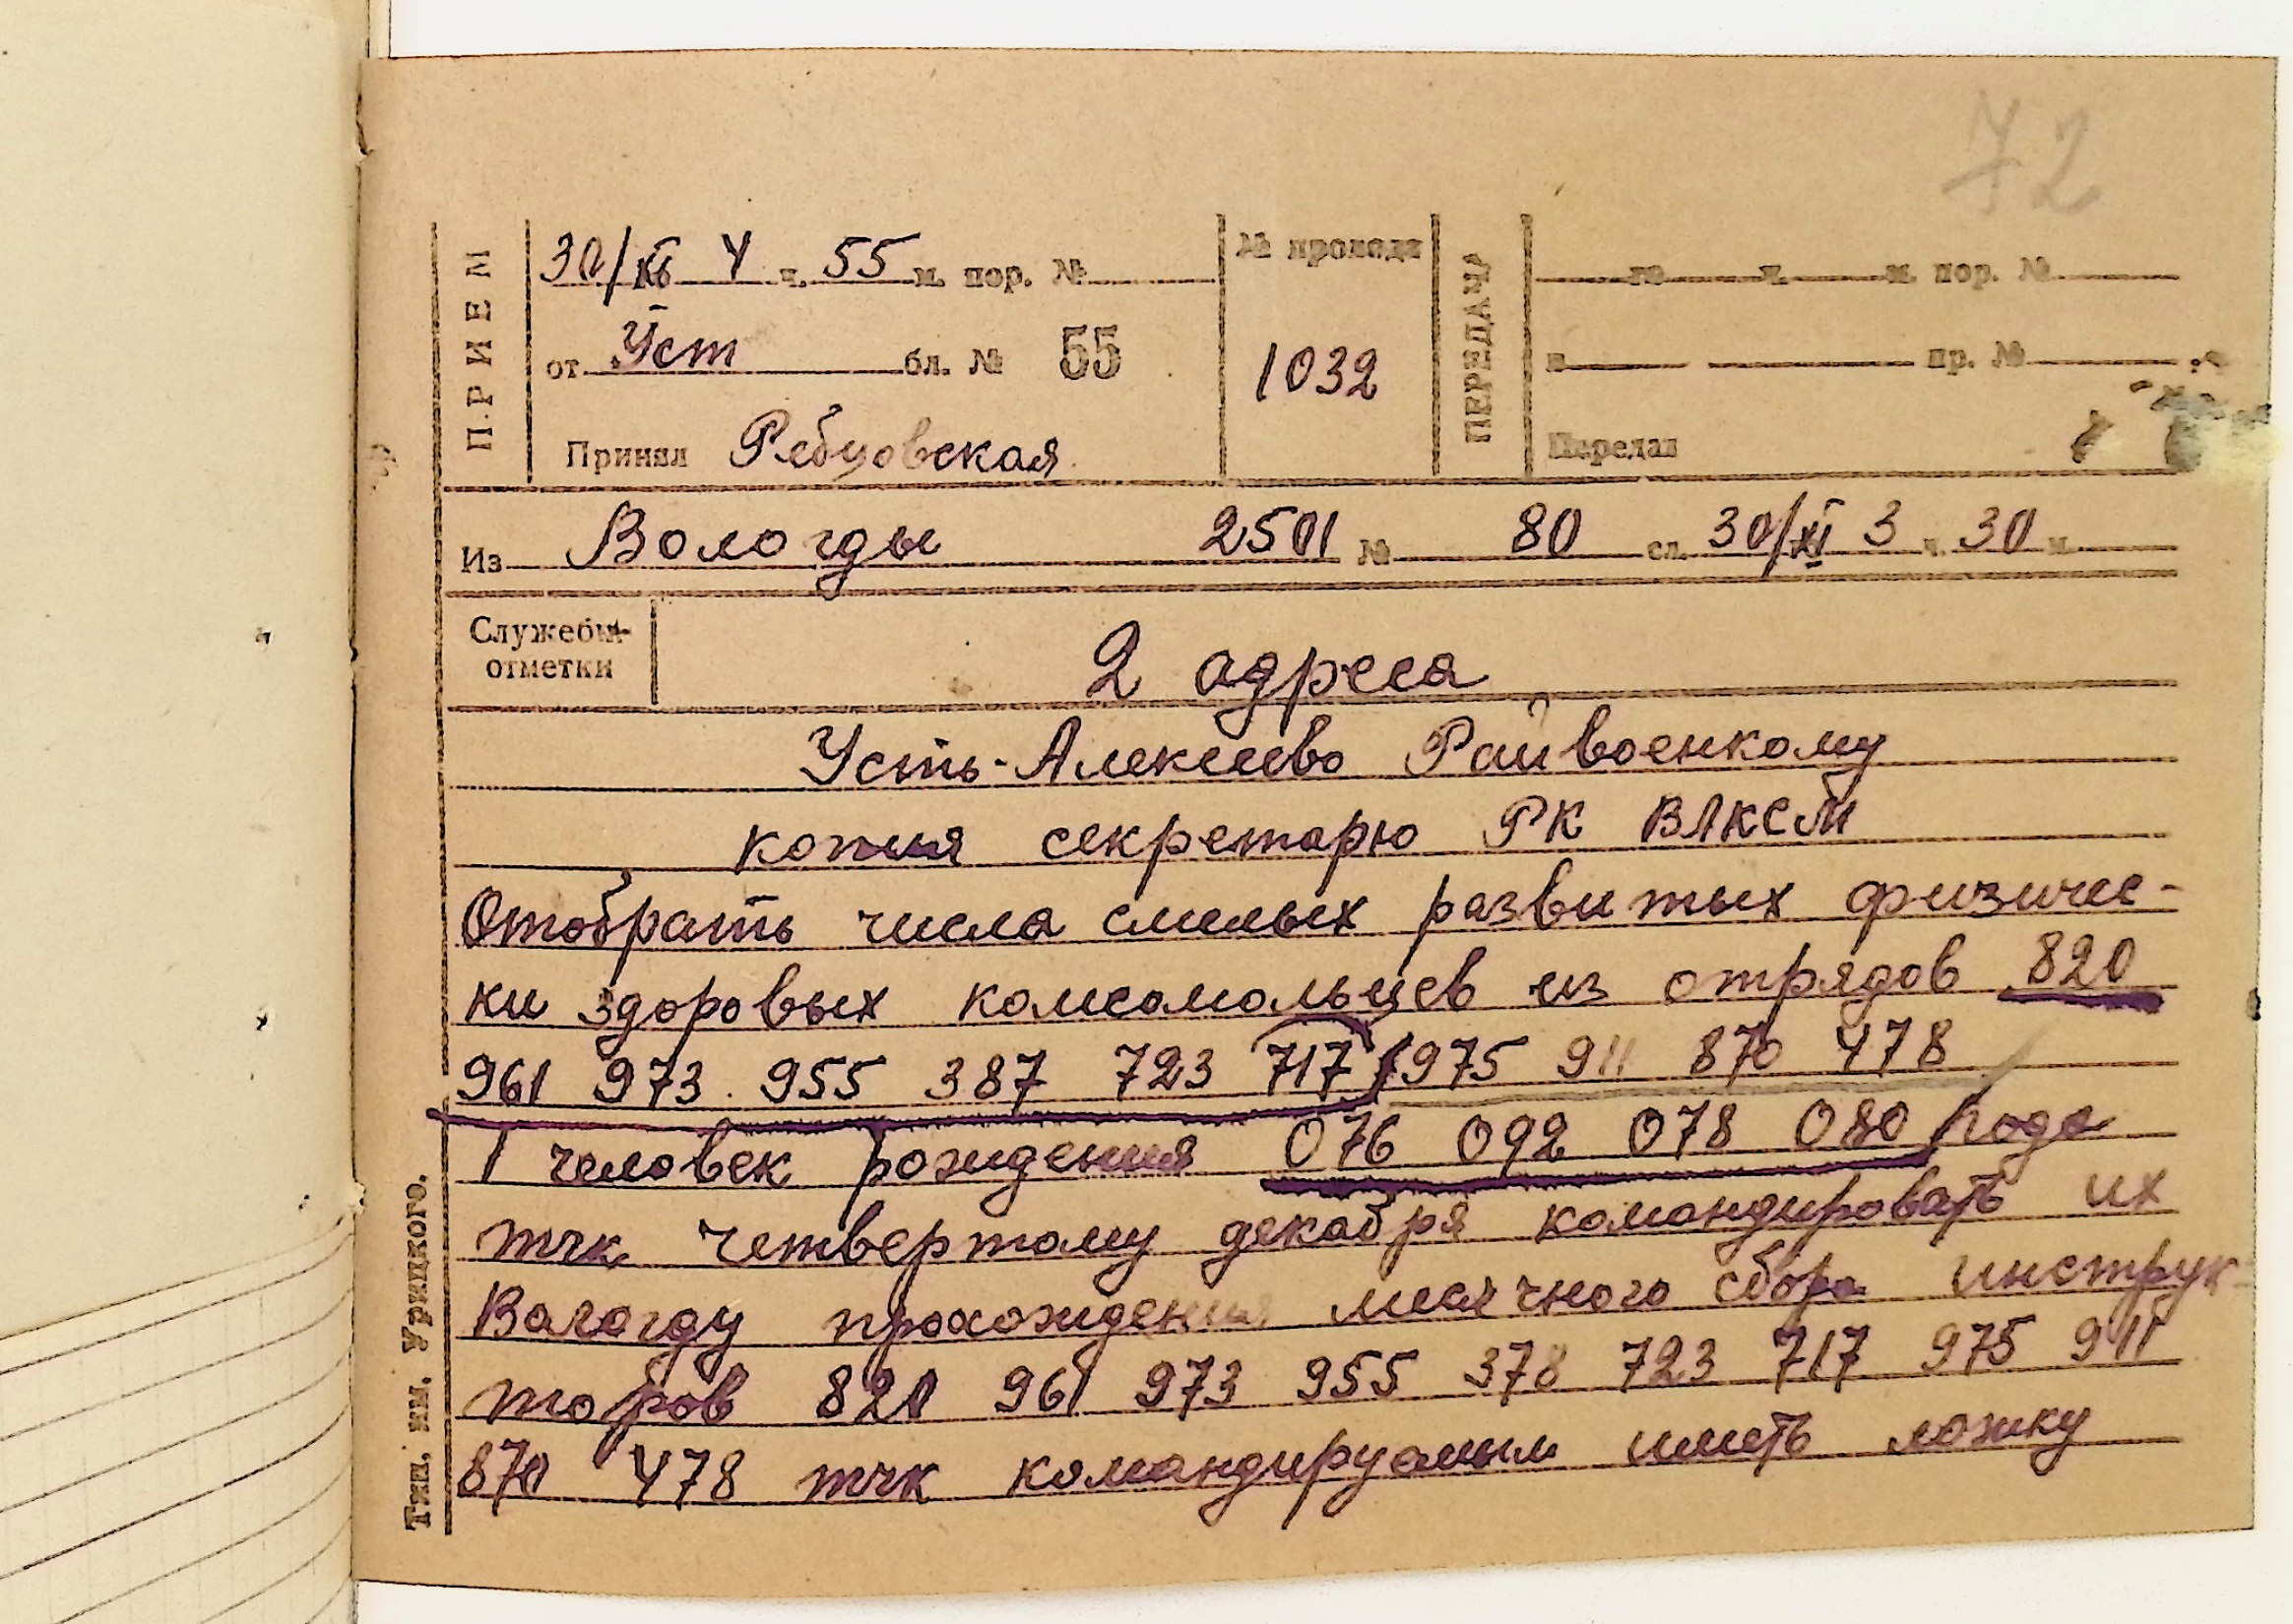 72
ПРИЕМ
30/XI 4 ч. 55 м. пор. №
от Уст бл. № 55
Принял Рябцовская
№ провода
1032
ПЕРЕДАЧА
го ч. м. пор. №
в пр. №
Передал
Из Вологды 2501 № 80 сл. 30/XI 3 ч. 30 м.
Служебн. отметки
2 адреса
Усть-Алексеево Райвоенкому
копия секретарю РК ВЛКСМ
Отобрать числа смелых развитых физичес-
ки здоровых комсомольцев из отрядов 820
961 973 955 387 723 717 975 911 870 478
1 человек рождения 076 092 078 080 года
тчк четвертому декабря командировать их
Вологду прохождения месячного сбора инструк-
торов 820 961 973 955 378 723 717 975 911
870 478 тчк командируемым иметь ложку
Тип. им. Урицкого.